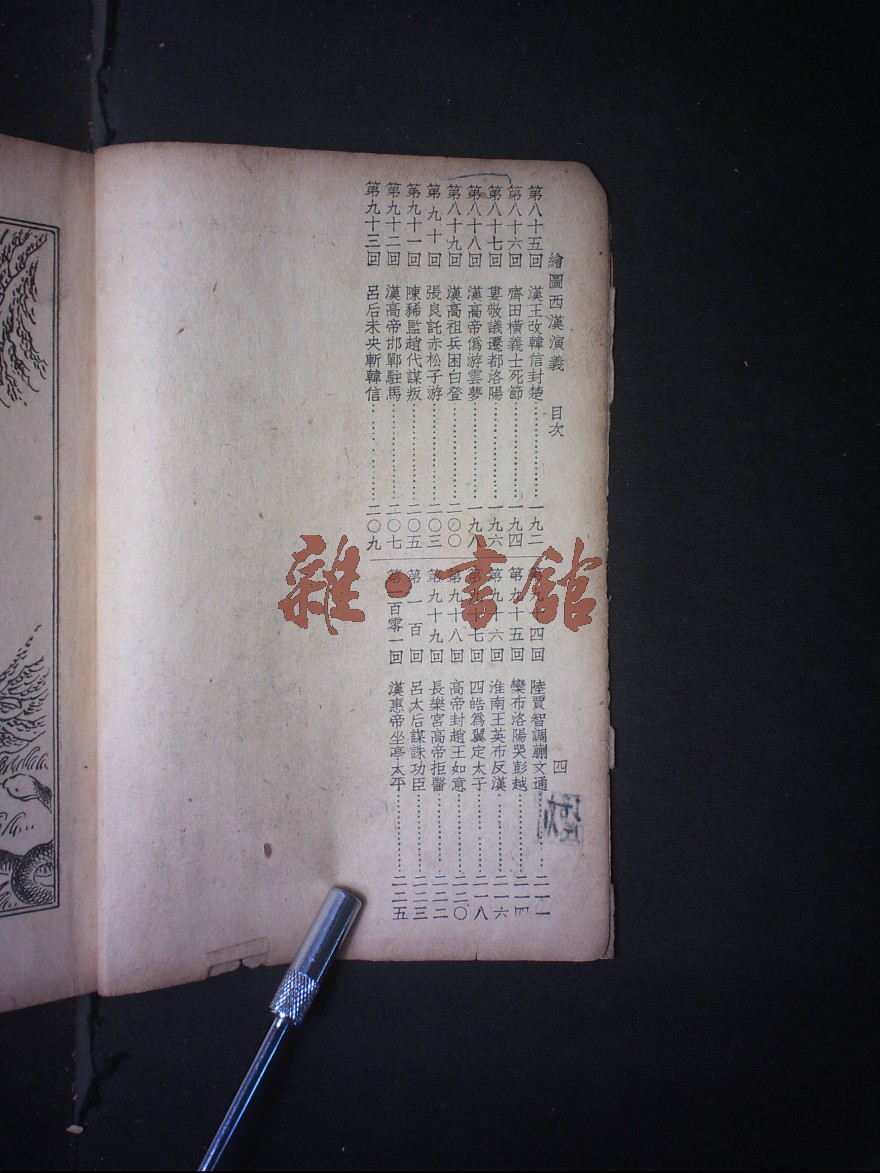 繪圖西漢演義 目次 四
第八十五回 漢王改韓信封楚 一九二
第八十六回 齊田橫義士死節 一九四
第八十七回 婁敬議遷都洛陽 一九六
第八十八回 漢高帝僞游雲夢 一九八
第八十九回 漢高祖兵困白登 二〇〇
第九十回 張良託赤松子游 二〇三
第九十一回 陳豨監趙代謀叛 二〇五
第九十二回 漢高帝邯鄲駐馬 二〇七
第九十三回 呂后未央斬韓信 二〇九
第九十四回 陸賈智調蒯文通 二一一
第九十五回 欒布洛陽哭彭越 二一四
第九十六回 淮南王英布反漢 二一六
第九十七回 四皓爲翼定太子 二一八
第九十八回 高帝封趙王如意 二二〇
第九十九回 長樂宮高帝拒醫 二二二
第一百回 呂太后謀誅功臣 二二三
第一百零一回 漢惠帝坐享太平 二二五
雜·書館